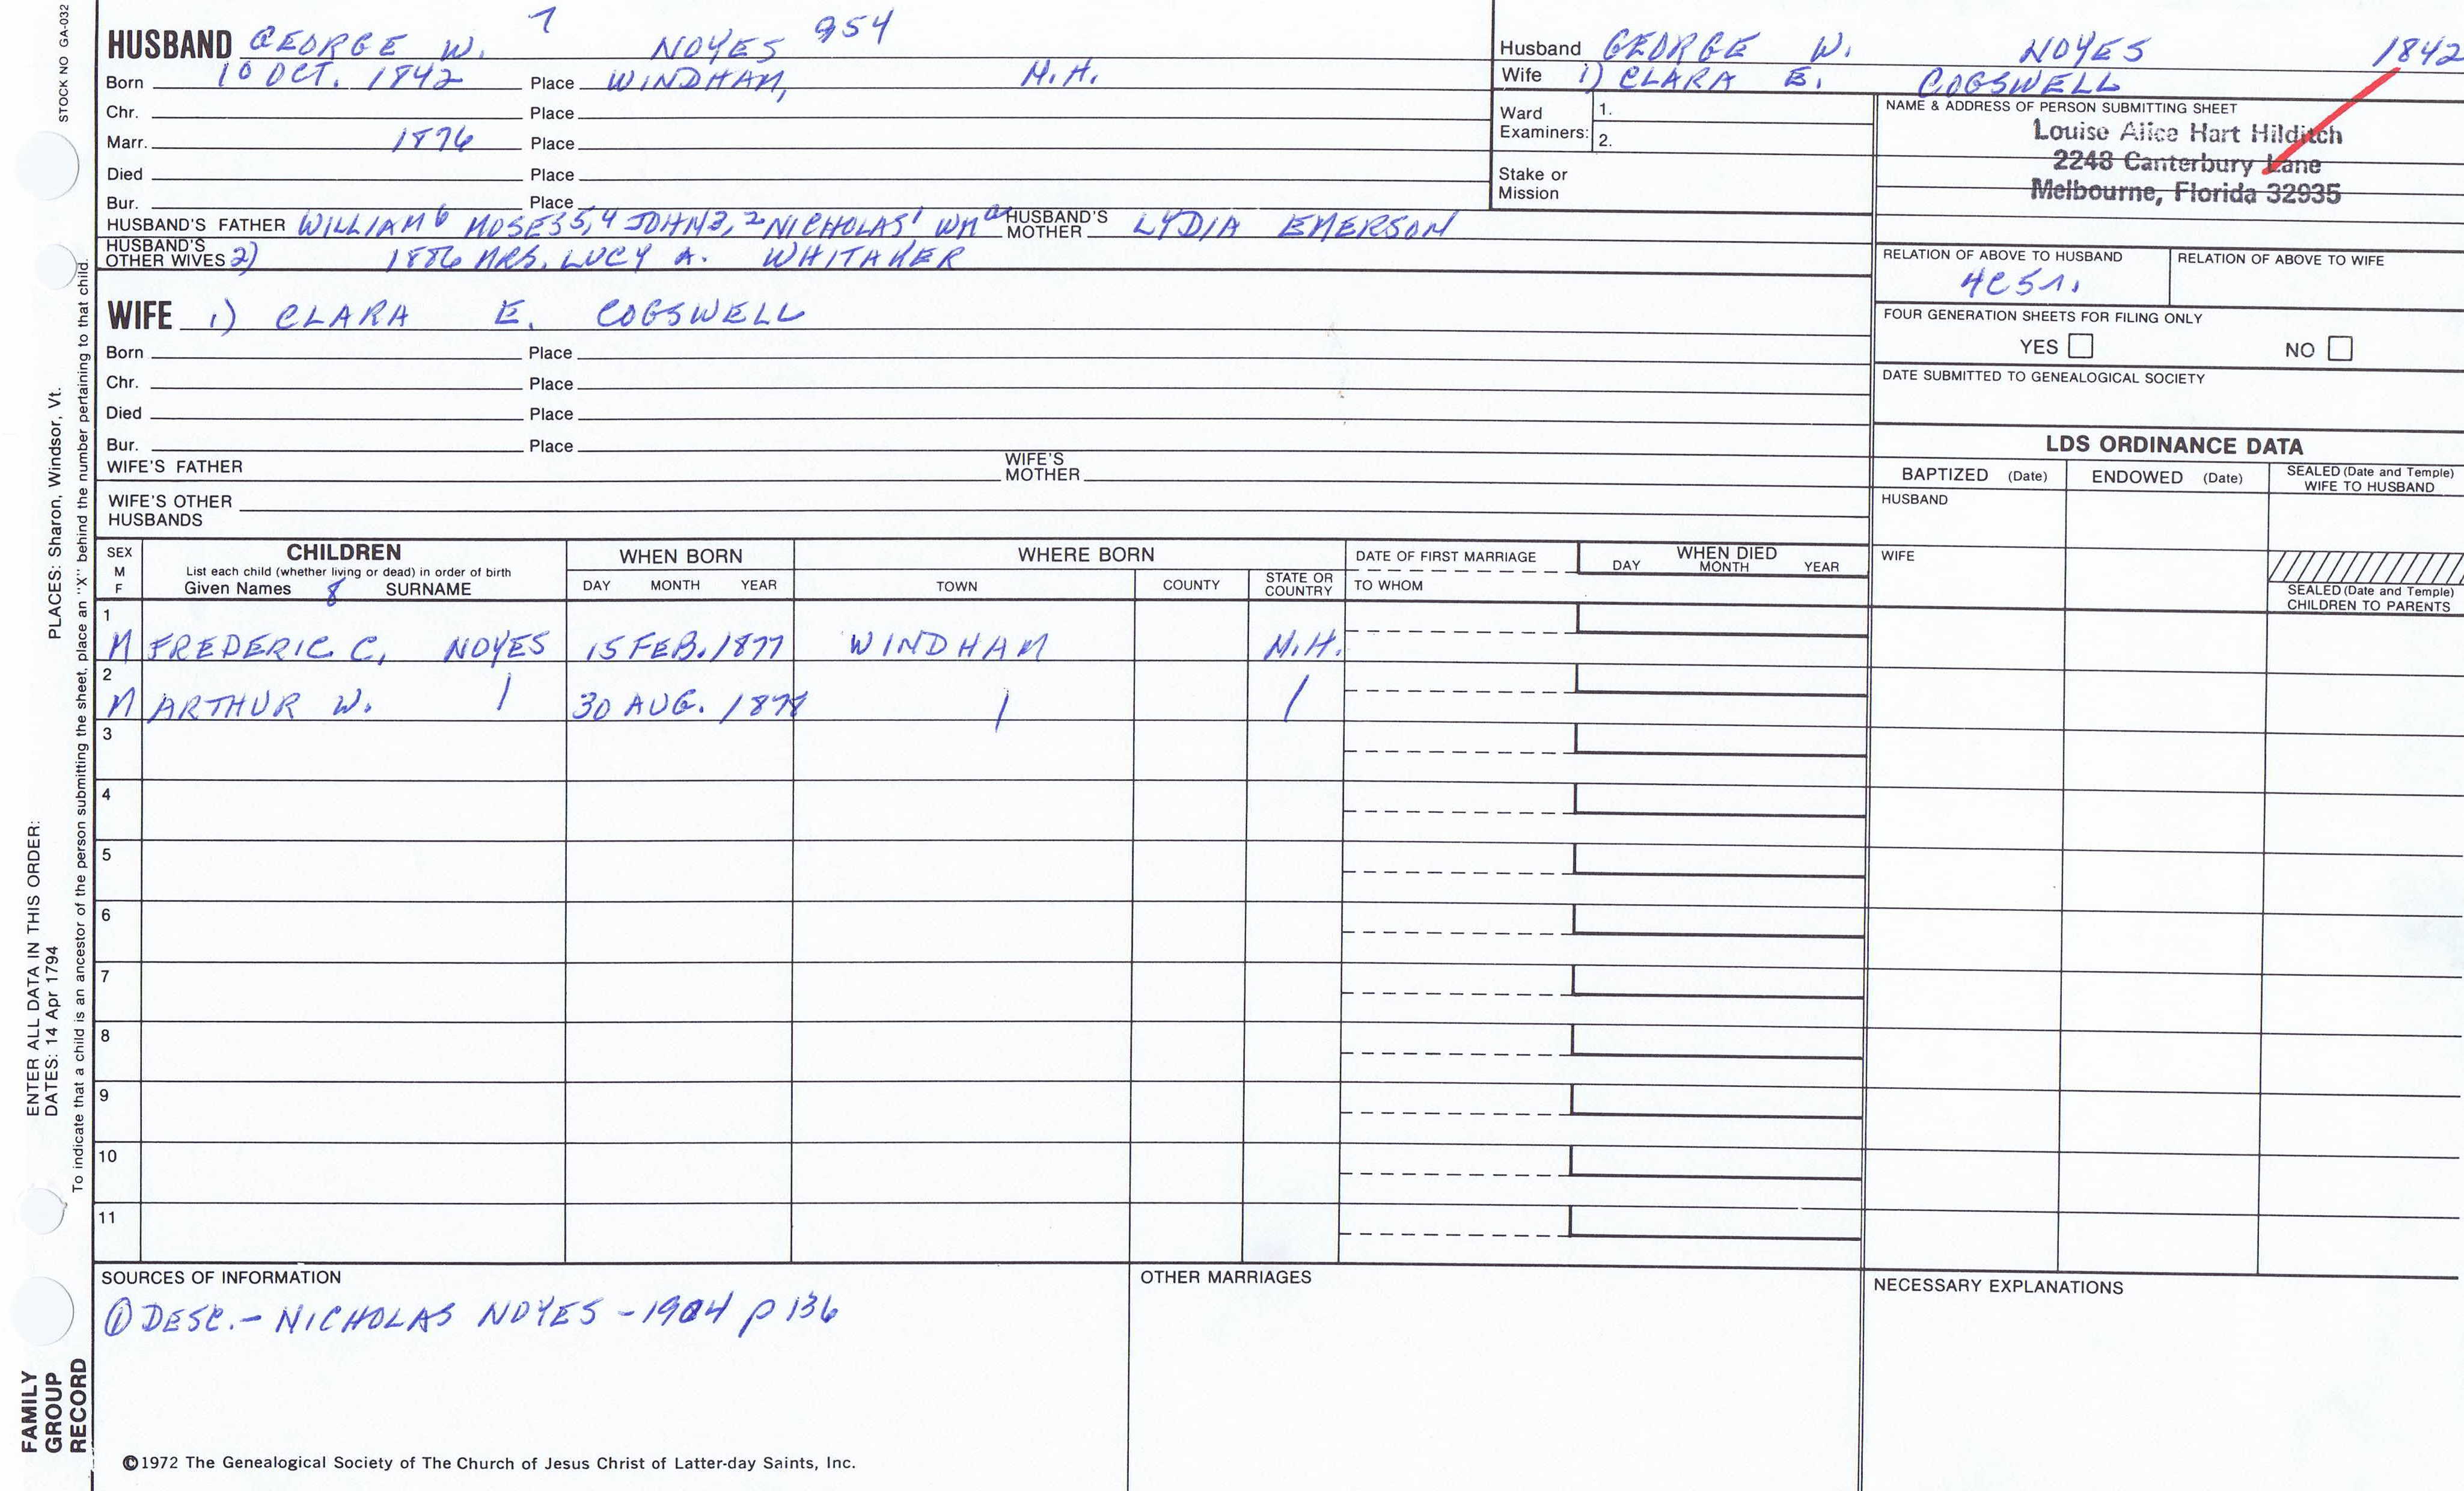 STOCK NO GA-032
HUSBAND GEORGE W. 7 NOYES 954
Born 10 OCT. 1842 Place WINDHAM, N.H.
Chr. Place
Marr. 1876 Place
Died Place
Bur. Place
HUSBAND'S FATHER WILLIAM 6 MOSES 5,4 JOHN 3,2 NICHOLAS 1 WM a HUSBAND'S MOTHER LYDIA EMERSON
HUSBAND'S OTHER WIVES 2) 1886 MRS. LUCY A. WHITAKER
WIFE 1) CLARA E. COGSWELL
Born Place
Chr. Place
Died Place
Bur. Place
WIFE'S FATHER WIFE'S MOTHER
WIFE'S OTHER HUSBANDS
Husband GEORGE W. NOYES 1842
Wife 1) CLARA E. COGSWELL
Ward Examiners: 1.
2.
Stake or Mission
NAME & ADDRESS OF PERSON SUBMITTING SHEET
Louise Alice Hart Hilditch
2248 Canterbury Lane
Melbourne, Florida 32935
RELATION OF ABOVE TO HUSBAND RELATION OF ABOVE TO WIFE
4C51.
FOUR GENERATION SHEETS FOR FILING ONLY
YES NO
DATE SUBMITTED TO GENEALOGICAL SOCIETY
LDS ORDINANCE DATA
BAPTIZED (Date) ENDOWED (Date) SEALED (Date and Temple) WIFE TO HUSBAND
HUSBAND
WIFE
SEALED (Date and Temple) CHILDREN TO PARENTS
SEX M F CHILDREN WHEN BORN WHERE BORN DATE OF FIRST MARRIAGE WHEN DIED
List each child (whether living or dead) in order of birth
Given Names 8 SURNAME DAY MONTH YEAR TOWN COUNTY STATE OR COUNTRY TO WHOM DAY MONTH YEAR
1
M FREDERIC C. NOYES 15 FEB. 1877 WINDHAM N.H.
2
M ARTHUR W. 30 AUG. 1878
3
4
5
6
7
8
9
10
11
SOURCES OF INFORMATION OTHER MARRIAGES NECESSARY EXPLANATIONS
① DESC. - NICHOLAS NOYES - 1904 p 136
©1972 The Genealogical Society of The Church of Jesus Christ of Latter-day Saints, Inc.
ENTER ALL DATA IN THIS ORDER:
DATES: 14 Apr 1794 PLACES: Sharon, Windsor, Vt.
To indicate that a child is an ancestor of the person submitting the sheet, place an "X" behind the number pertaining to that child.
FAMILY
GROUP
RECORD